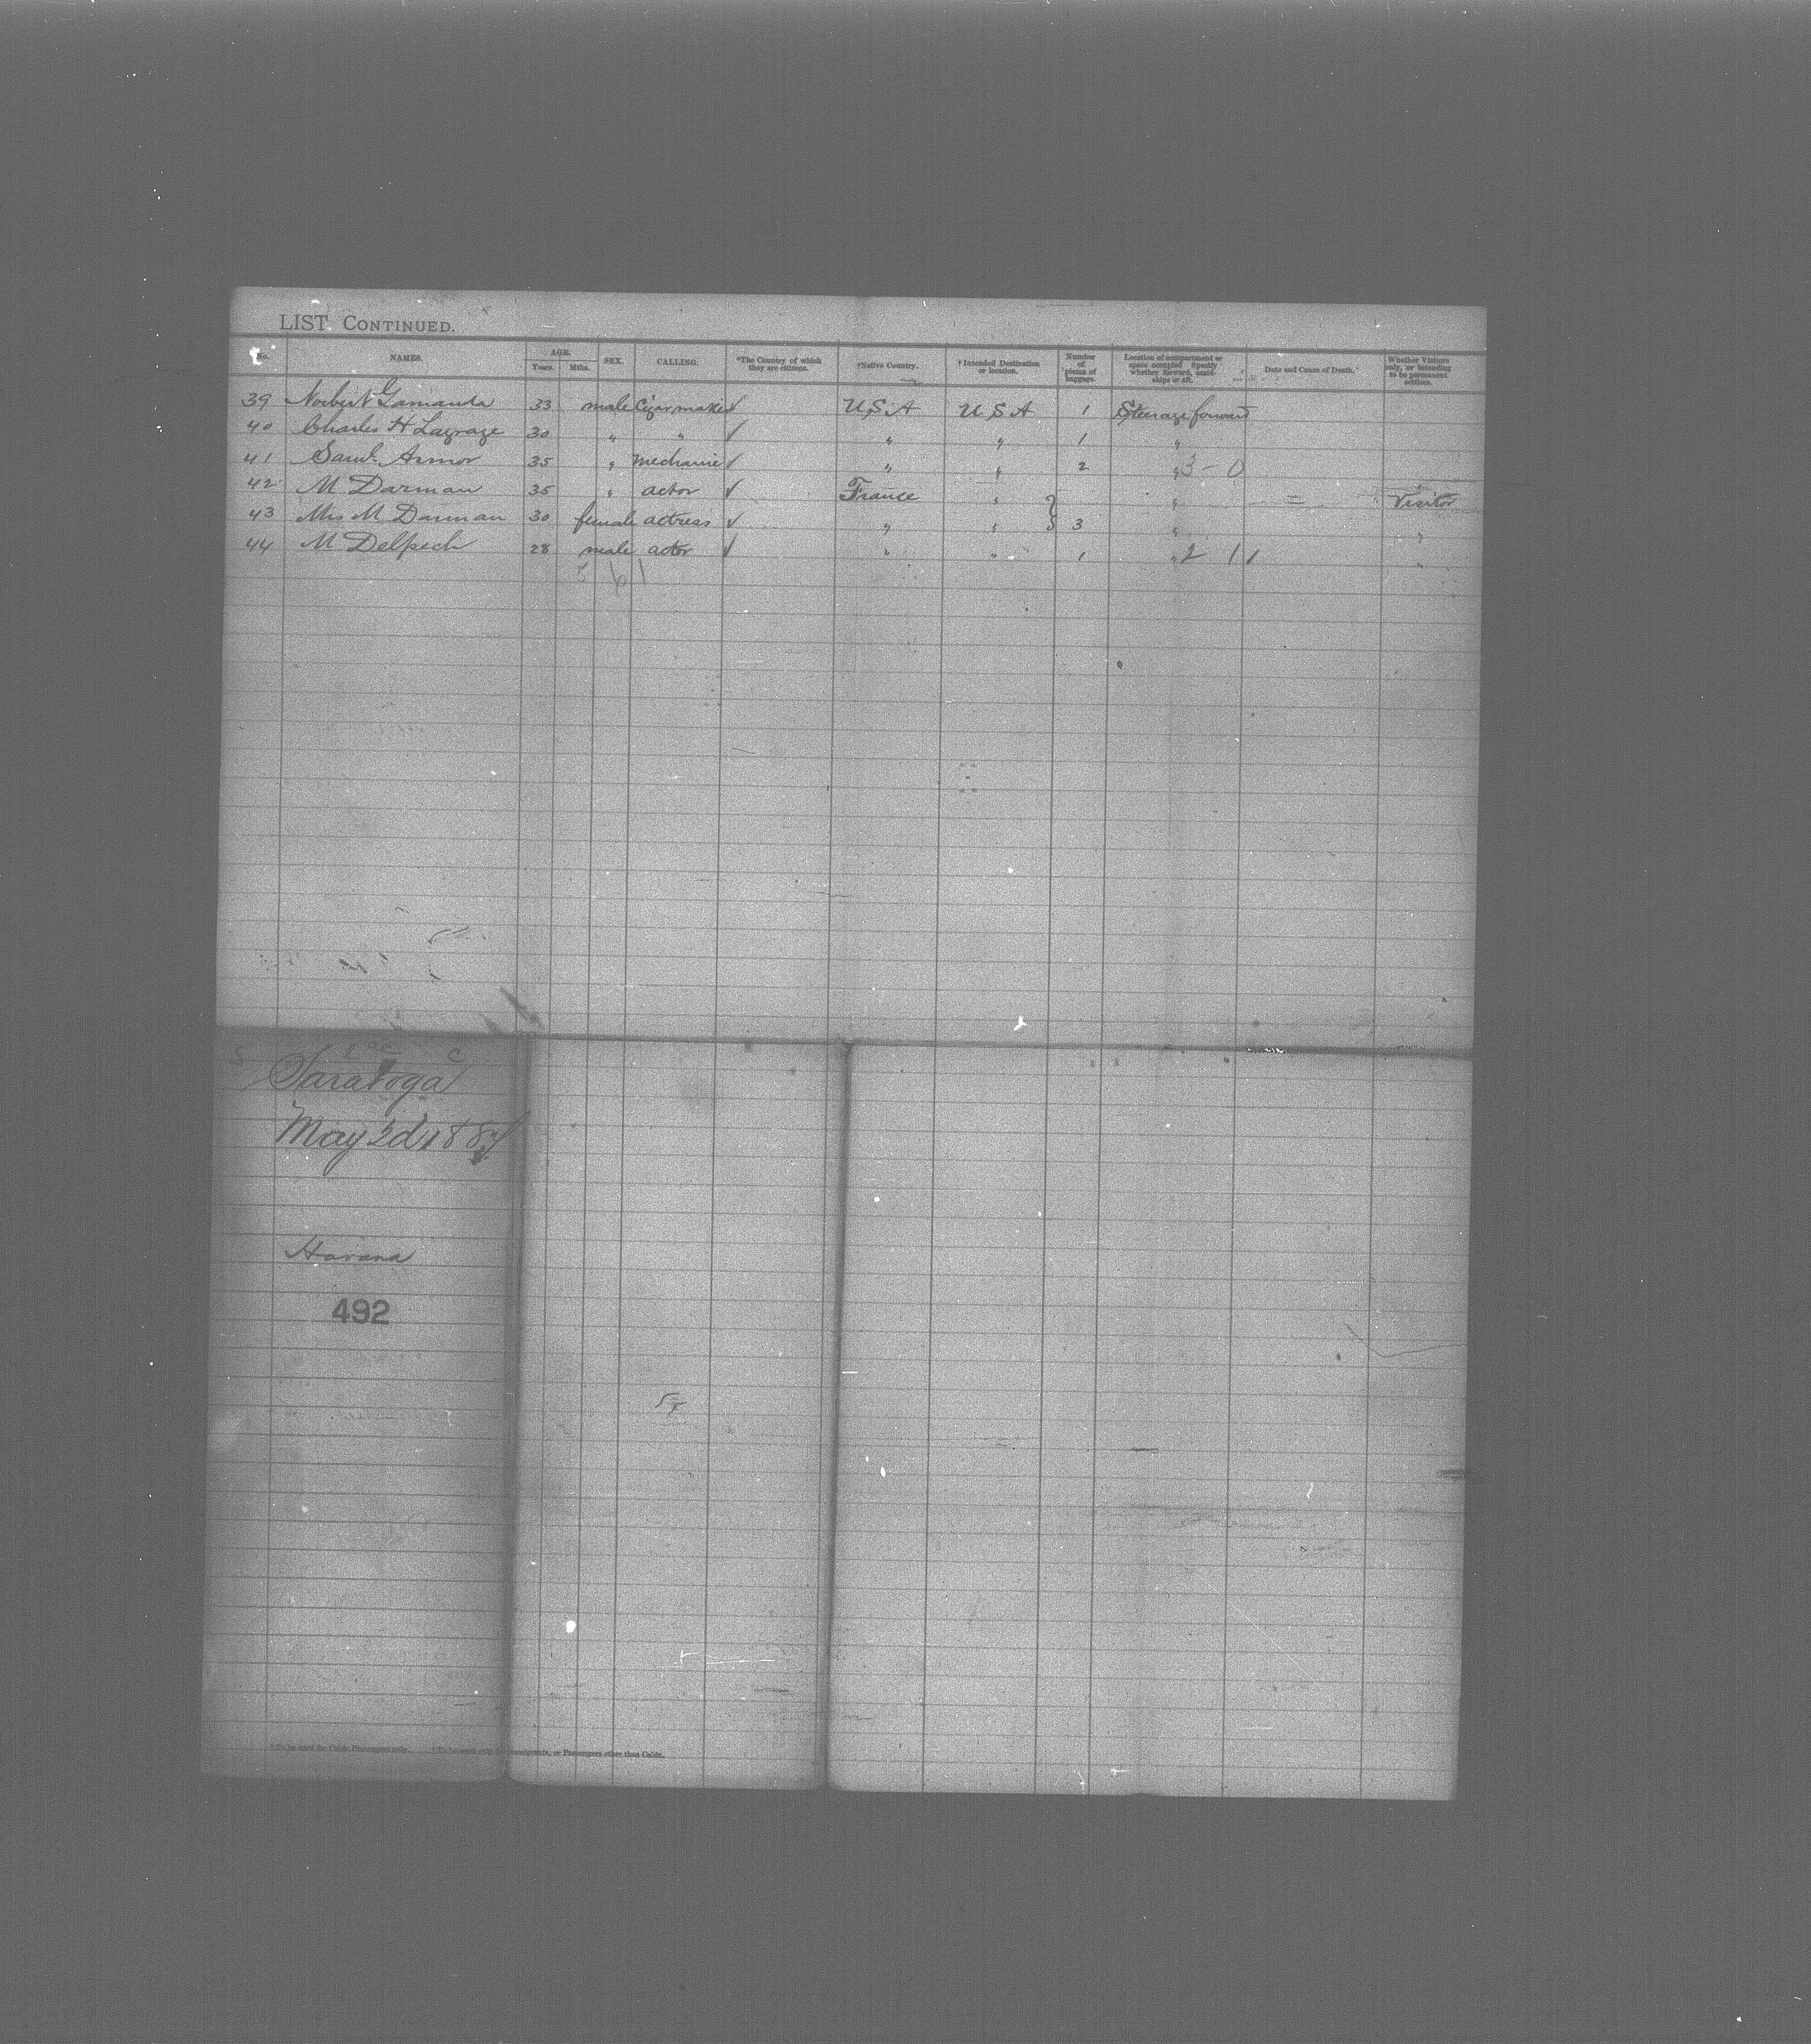 LIST CONTINUED.
No. NAMES. AGE. Years. Mths. SEX. CALLING. *The Country of which they are citizens. †Native Country. †Intended Destination or location. Number of pieces of baggage. Location of compartment or space occupied Specify whether forward, amidships or aft. Date and Cause of Death. Whether Visitors only, or intending to be permanent settlers.
39 Norbert Gamanda 33 male Cigarmaker ✓ U.S.A U.S.A 1 Steerage forward
40 Charles H Lagraze 30 " " ✓ " " 1 "
41 Saml. Armor 35 " mechanic ✓ " " 2 " 3 - 0
42 M Darman 35 " actor ✓ France " } " = Visitor
43 Mrs M Darman 30 female actress ✓ " " 3 " "
44 M Delpech 28 male actor ✓ " " 1 " 2 1 "
5 6 1
Saratoga
May 2d 188
Havana
492
*To be used for Cabin Passengers only. †To be used only for Immigrants, or Passengers other than Cabin.